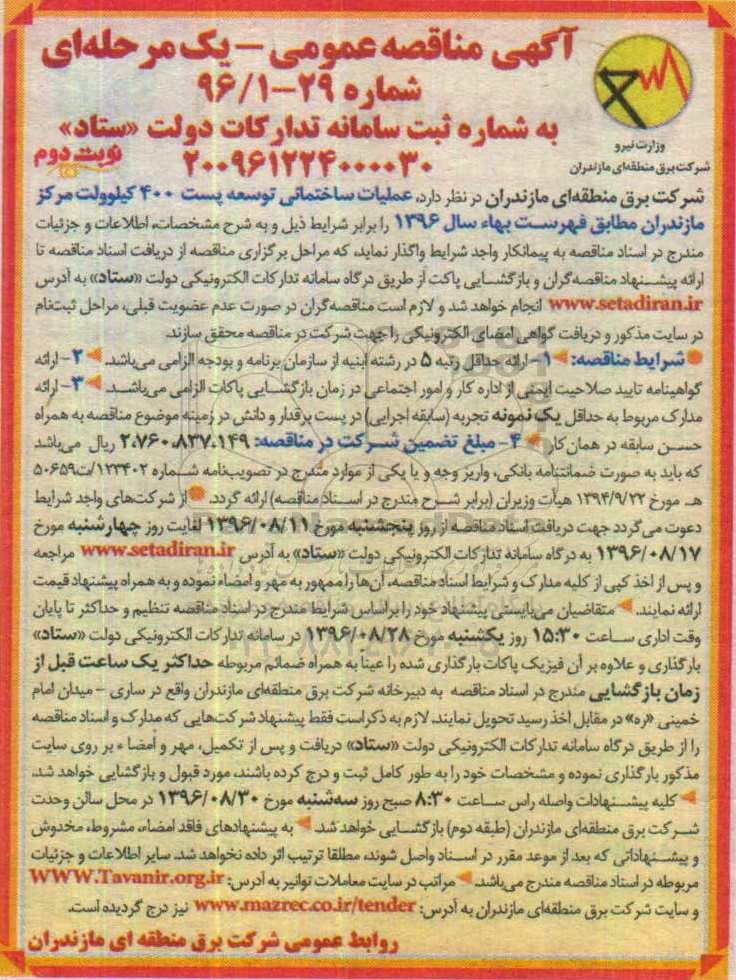 آگهی مناقصه عمومی – یک مرحله‌ای
شماره ۲۹-۹۶/۱
به شماره ثبت سامانه تدارکات دولت «ستاد»
۲۰۰۹۶۱۲۲۴۰۰۰۰۳۰
نوبت دوم
وزارت نیرو
شرکت برق منطقه‌ای مازندران
شرکت برق منطقه‌ای مازندران در نظر دارد، عملیات ساختمانی توسعه پست ۴۰۰ کیلوولت مرکز
مازندران مطابق فهرست بهاء سال ۱۳۹۶ را برابر شرایط ذیل و به شرح مشخصات، اطلاعات و جزئیات
مندرج در اسناد مناقصه به پیمانکار واجد شرایط واگذار نماید، که مراحل برگزاری مناقصه از دریافت اسناد مناقصه تا
ارائه پیشنهاد مناقصه‌گران و بازگشایی پاکت از طریق درگاه سامانه تدارکات الکترونیکی دولت «ستاد» به آدرس
www.setadiran.ir انجام خواهد شد و لازم است مناقصه‌گران در صورت عدم عضویت قبلی، مراحل ثبت‌نام
در سایت مذکور و دریافت گواهی امضای الکترونیکی را جهت شرکت در مناقصه محقق سازند.
شرایط مناقصه: ۱- ارائه حداقل رتبه ۵ در رشته ابنیه از سازمان برنامه و بودجه الزامی می‌باشد. ۲- ارائه
گواهینامه تایید صلاحیت ایمنی از اداره کار و امور اجتماعی در زمان بازگشایی پاکات الزامی می‌باشد. ۳- ارائه
مدارک مربوط به حداقل یک نمونه تجربه (سابقه اجرایی) در پست برقدار و دانش در زمینه موضوع مناقصه به همراه
حسن سابقه در همان کار ۴- مبلغ تضمین شرکت در مناقصه: ۲،۷۶۰،۸۳۷،۱۴۹ ریال می‌باشد
که باید به صورت ضمانتنامه بانکی، واریز وجه و یا یکی از موارد مندرج در تصویب‌نامه شماره ۱۲۳۴۰۲/ت۵۰۶۵۹
هـ مورخ ۱۳۹۴/۹/۲۲ هیأت وزیران (برابر شرح مندرج در اسناد مناقصه) ارائه گردد. از شرکت‌های واجد شرایط
دعوت می‌گردد جهت دریافت اسناد مناقصه از روز پنجشنبه مورخ ۱۳۹۶/۰۸/۱۱ لغایت روز چهارشنبه مورخ
۱۳۹۶/۰۸/۱۷ به درگاه سامانه تدارکات الکترونیکی دولت «ستاد» به آدرس www.setadiran.ir مراجعه
و پس از اخذ کپی از کلیه مدارک و شرایط اسناد مناقصه، آن‌ها را ممهور به مهر و امضاء نموده و به همراه پیشنهاد قیمت
ارائه نمایند. متقاضیان می‌بایستی پیشنهاد خود را براساس شرایط مندرج در اسناد مناقصه تنظیم و حداکثر تا پایان
وقت اداری ساعت ۱۵:۳۰ روز یکشنبه مورخ ۱۳۹۶/۰۸/۲۸ در سامانه تدارکات الکترونیکی دولت «ستاد»
بارگذاری و علاوه بر آن فیزیک پاکات بارگذاری شده را عینا به همراه ضمائم مربوطه حداکثر یک ساعت قبل از
زمان بازگشایی مندرج در اسناد مناقصه به دبیرخانه شرکت برق منطقه‌ای مازندران واقع در ساری – میدان امام
خمینی «ره» در مقابل اخذ رسید تحویل نمایند. لازم به ذکر است فقط پیشنهاد شرکت‌هایی که مدارک و اسناد مناقصه
را از طریق درگاه سامانه تدارکات الکترونیکی دولت «ستاد» دریافت و پس از تکمیل، مهر و امضاء بر روی سایت
مذکور بارگذاری نموده و مشخصات خود را به طور کامل ثبت و درج کرده باشند، مورد قبول و بازگشایی خواهد شد.
کلیه پیشنهادات واصله راس ساعت ۸:۳۰ صبح روز سه‌شنبه مورخ ۱۳۹۶/۰۸/۳۰ در محل سالن وحدت
شرکت برق منطقه‌ای مازندران (طبقه دوم) بازگشایی خواهد شد. به پیشنهادهای فاقد امضاء، مشروط، مخدوش
و پیشنهاداتی که بعد از موعد مقرر در اسناد واصل شوند، مطلقا ترتیب اثر داده نخواهد شد. سایر اطلاعات و جزئیات
مربوطه در اسناد مناقصه مندرج می‌باشد. مراتب در سایت معاملات توانیر به آدرس: WWW.Tavanir.org.ir
و سایت شرکت برق منطقه‌ای مازندران به آدرس: www.mazrec.co.ir/tender نیز درج گردیده است.
روابط عمومی شرکت برق منطقه ای مازندران